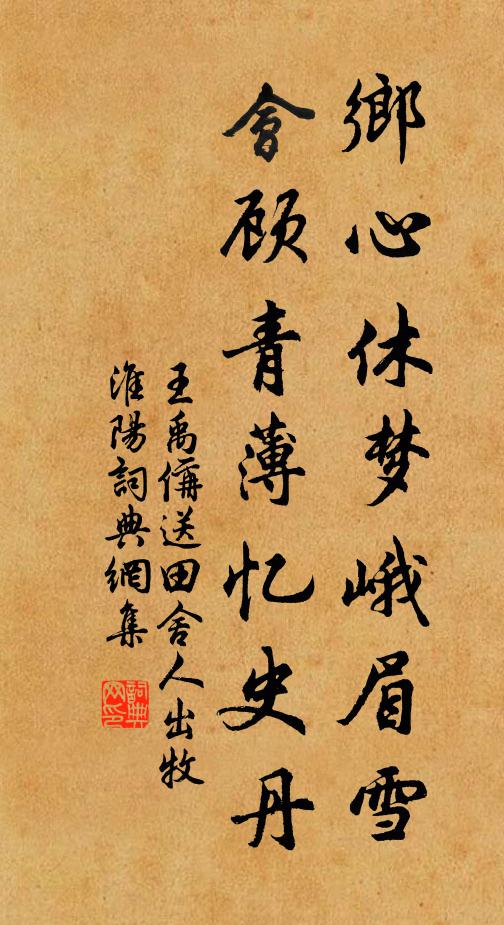 鄉心休梦峨眉雪
會顾青薄忆史丹
王禹偁送田舍人出牧
淮陽詞典網集
詞典网印